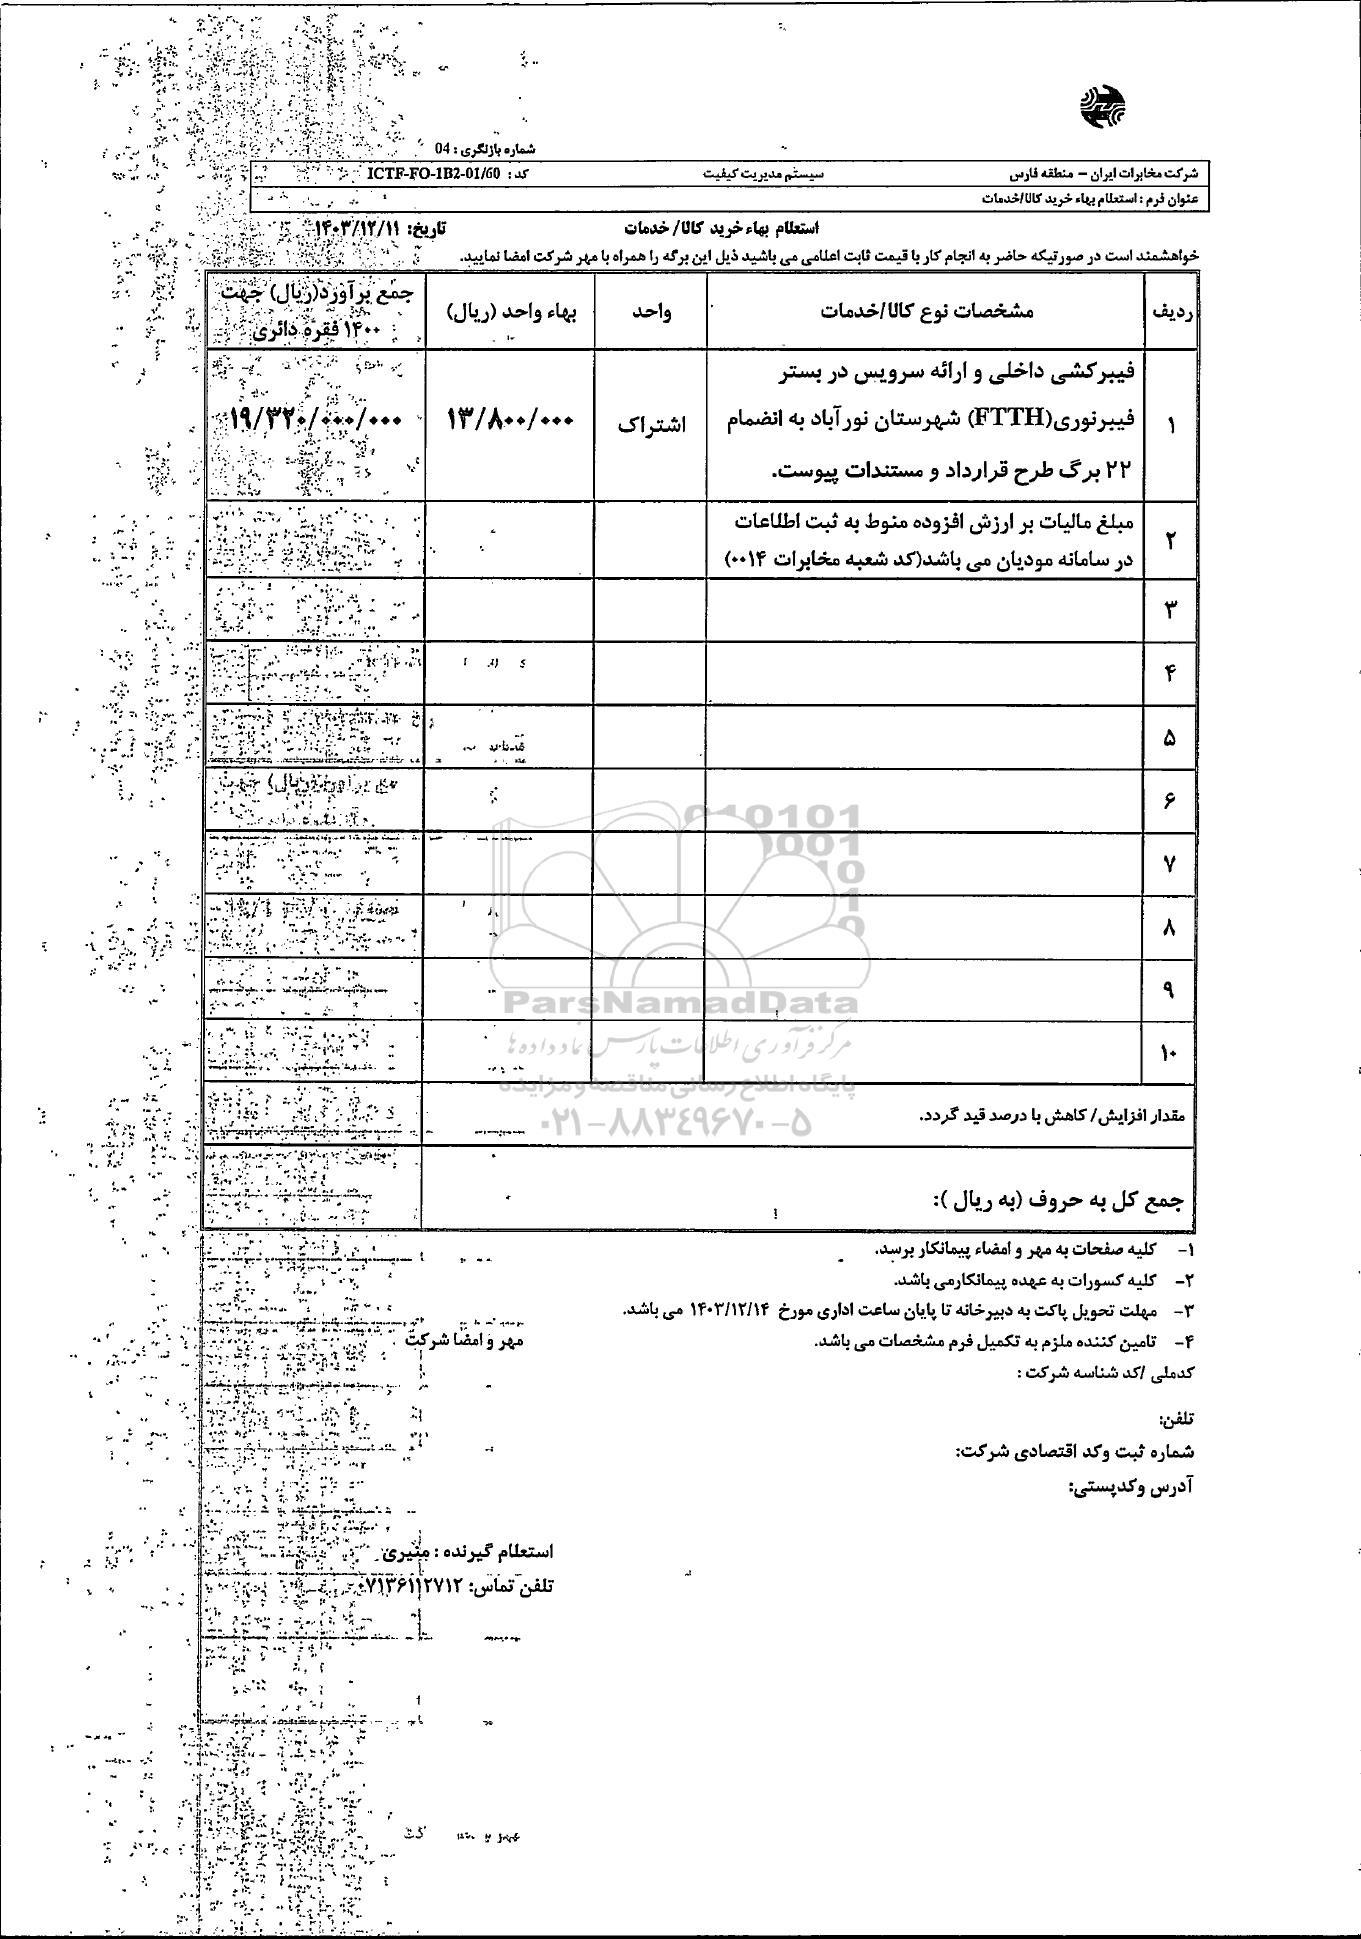 شماره بازنگری : 04
شرکت مخابرات ایران – منطقه فارس
سیستم مدیریت کیفیت
کد : ICTF-FO-1B2-01/60
عنوان فرم : استعلام بهاء خرید کالا/خدمات
استعلام بهاء خرید کالا/ خدمات
تاریخ: ۱۴۰۳/۱۲/۱۱
خواهشمند است در صورتیکه حاضر به انجام کار با قیمت ثابت اعلامی می باشید ذیل این برگه را همراه با مهر شرکت امضا نمایید.
ردیف
مشخصات نوع کالا/خدمات
واحد
بهاء واحد (ریال)
جمع برآورد(ریال) جهت
۱۴۰۰ فقره دائری
۱
فیبرکشی داخلی و ارائه سرویس در بستر
فیبرنوری(FTTH) شهرستان نورآباد به انضمام
۲۲ برگ طرح قرارداد و مستندات پیوست.
اشتراک
۱۳/۸۰۰/۰۰۰
۱۹/۳۲۰/۰۰۰/۰۰۰
۲
مبلغ مالیات بر ارزش افزوده منوط به ثبت اطلاعات
در سامانه مودیان می باشد(کد شعبه مخابرات ۰۰۱۴)
۳
۴
۵
۶
۷
۸
۹
۱۰
ParsNamadData
مرکز فرآوری اطلاعات پارس نماد داده ها
پایگاه اطلاع رسانی مناقصه و مزایده
۰۲۱-۸۸۳۴۹۶۷۰-۵
مقدار افزایش/ کاهش با درصد قید گردد.
جمع کل به حروف (به ریال ):
۱- کلیه صفحات به مهر و امضاء پیمانکار برسد.
۲- کلیه کسورات به عهده پیمانکارمی باشد.
۳- مهلت تحویل پاکت به دبیرخانه تا پایان ساعت اداری مورخ ۱۴۰۳/۱۲/۱۴ می باشد.
۴- تامین کننده ملزم به تکمیل فرم مشخصات می باشد.
مهر و امضا شرکت
کدملی /کد شناسه شرکت :
تلفن:
شماره ثبت وکد اقتصادی شرکت:
آدرس وکدپستی:
استعلام گیرنده : منیری
تلفن تماس: ۰۷۱۳۶۱۱۲۷۱۲